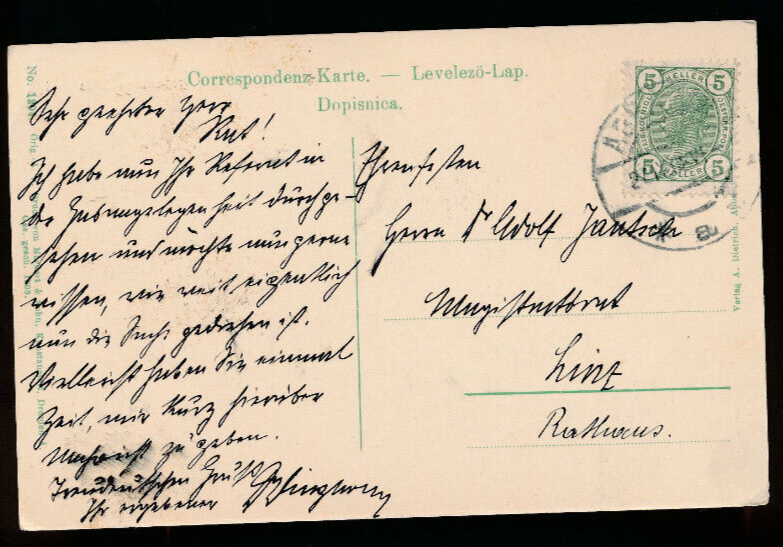 Correspondenz-Karte. — Levelezö-Lap.
Dopisnica.
Sehr geehrter Herr
Rat!
Ich habe nun Ihr Referat in
der angelegenheit durchge-
sehen und möchte nun gerne
wissen, wie weit eigentlich
nun die Sache gediehen ist.
Vielleicht haben Sie einmal
Zeit, mir kurz hierüber
Nachricht zu geben.
Treudeutschen Gruß
Ihr ergebener
Ehrenfesten
Herrn Dr Adolf Jautsch
Magistratsrat
Linz
Rathaus.
5 HELLER 5
5 HELLER 5
Verlag A. Dietrich,